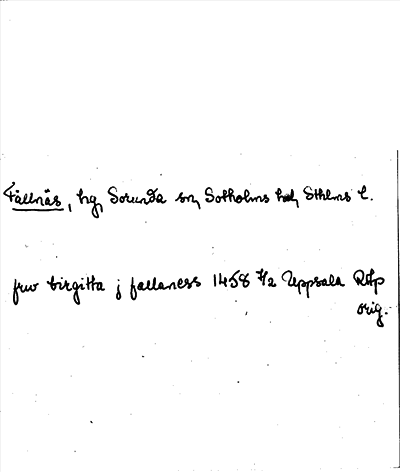 Fällnäs, hg, Sorunda sn, Sotholms hd, Sthlms l.
fru birgitta j fallaness 1458 4/2 Uppsala RAp
orig.